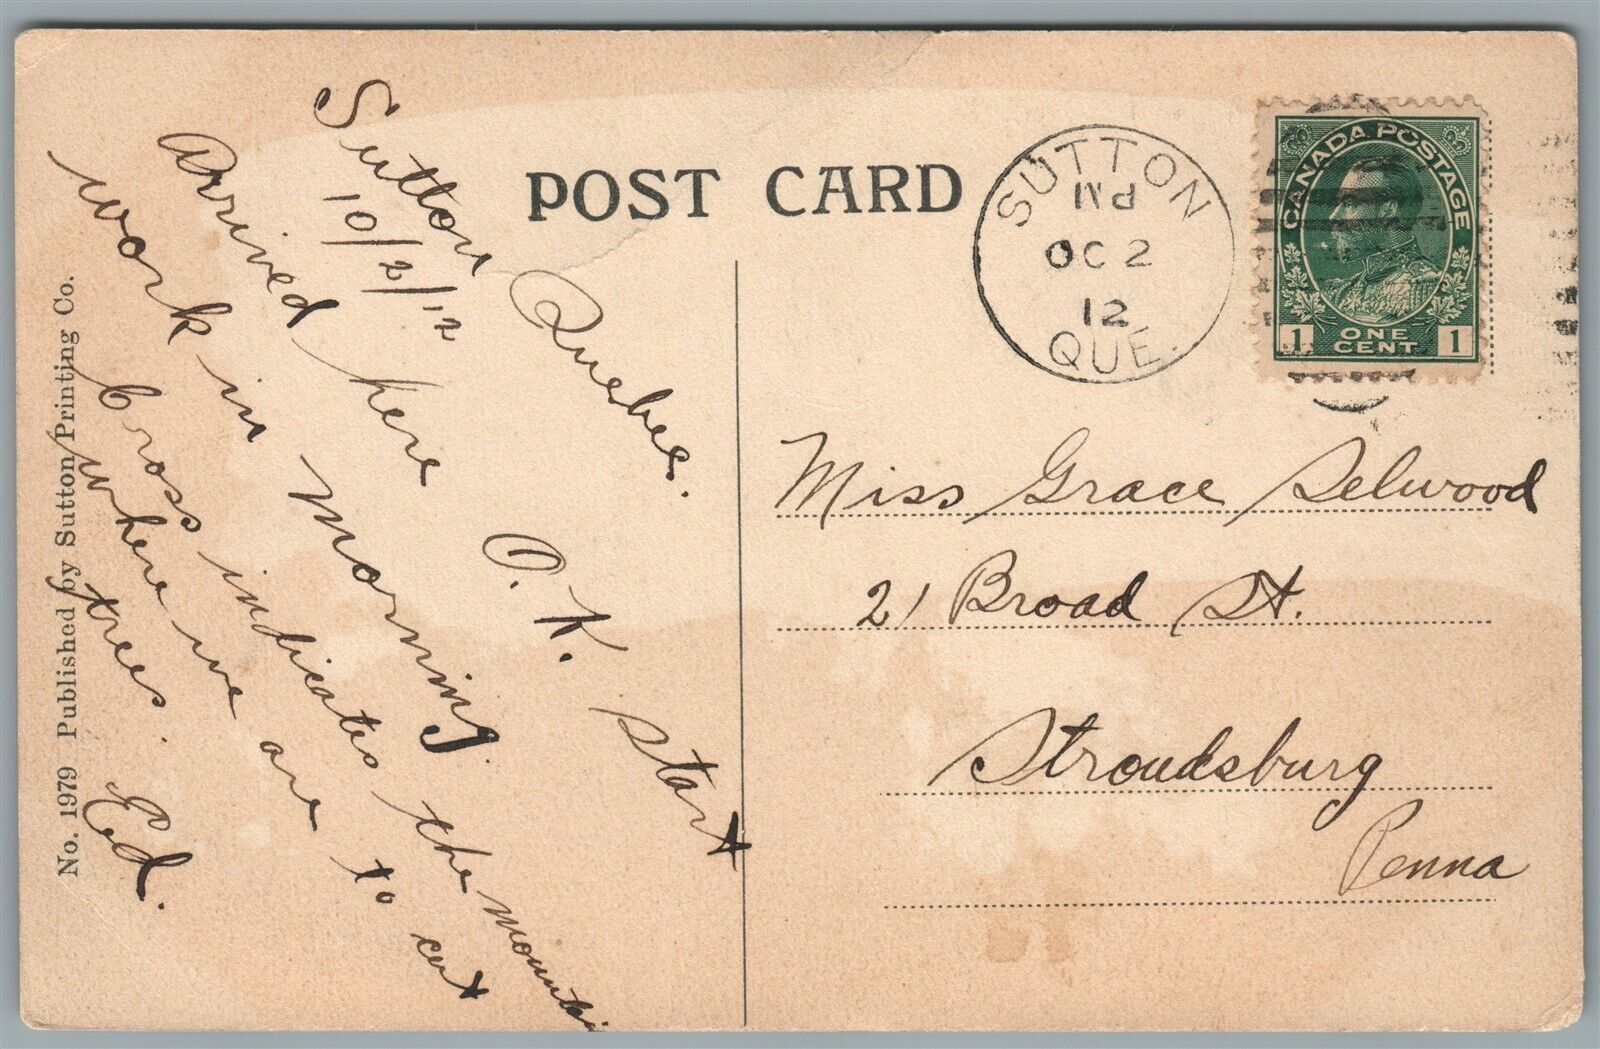 POST CARD
Sutton Quebec.
10/2/12
Arrived here O.K. Start
work in morning.
Cross indicates the mountain
where we are to cut
trees.
Ed.
No. 1979 Published by Sutton Printing Co.
SUTTON
PM
OC 2
12
QUE.
CANADA POSTAGE
1 ONE CENT 1
Miss Grace Selwood
21 Broad St.
Stroudsburg
Penna